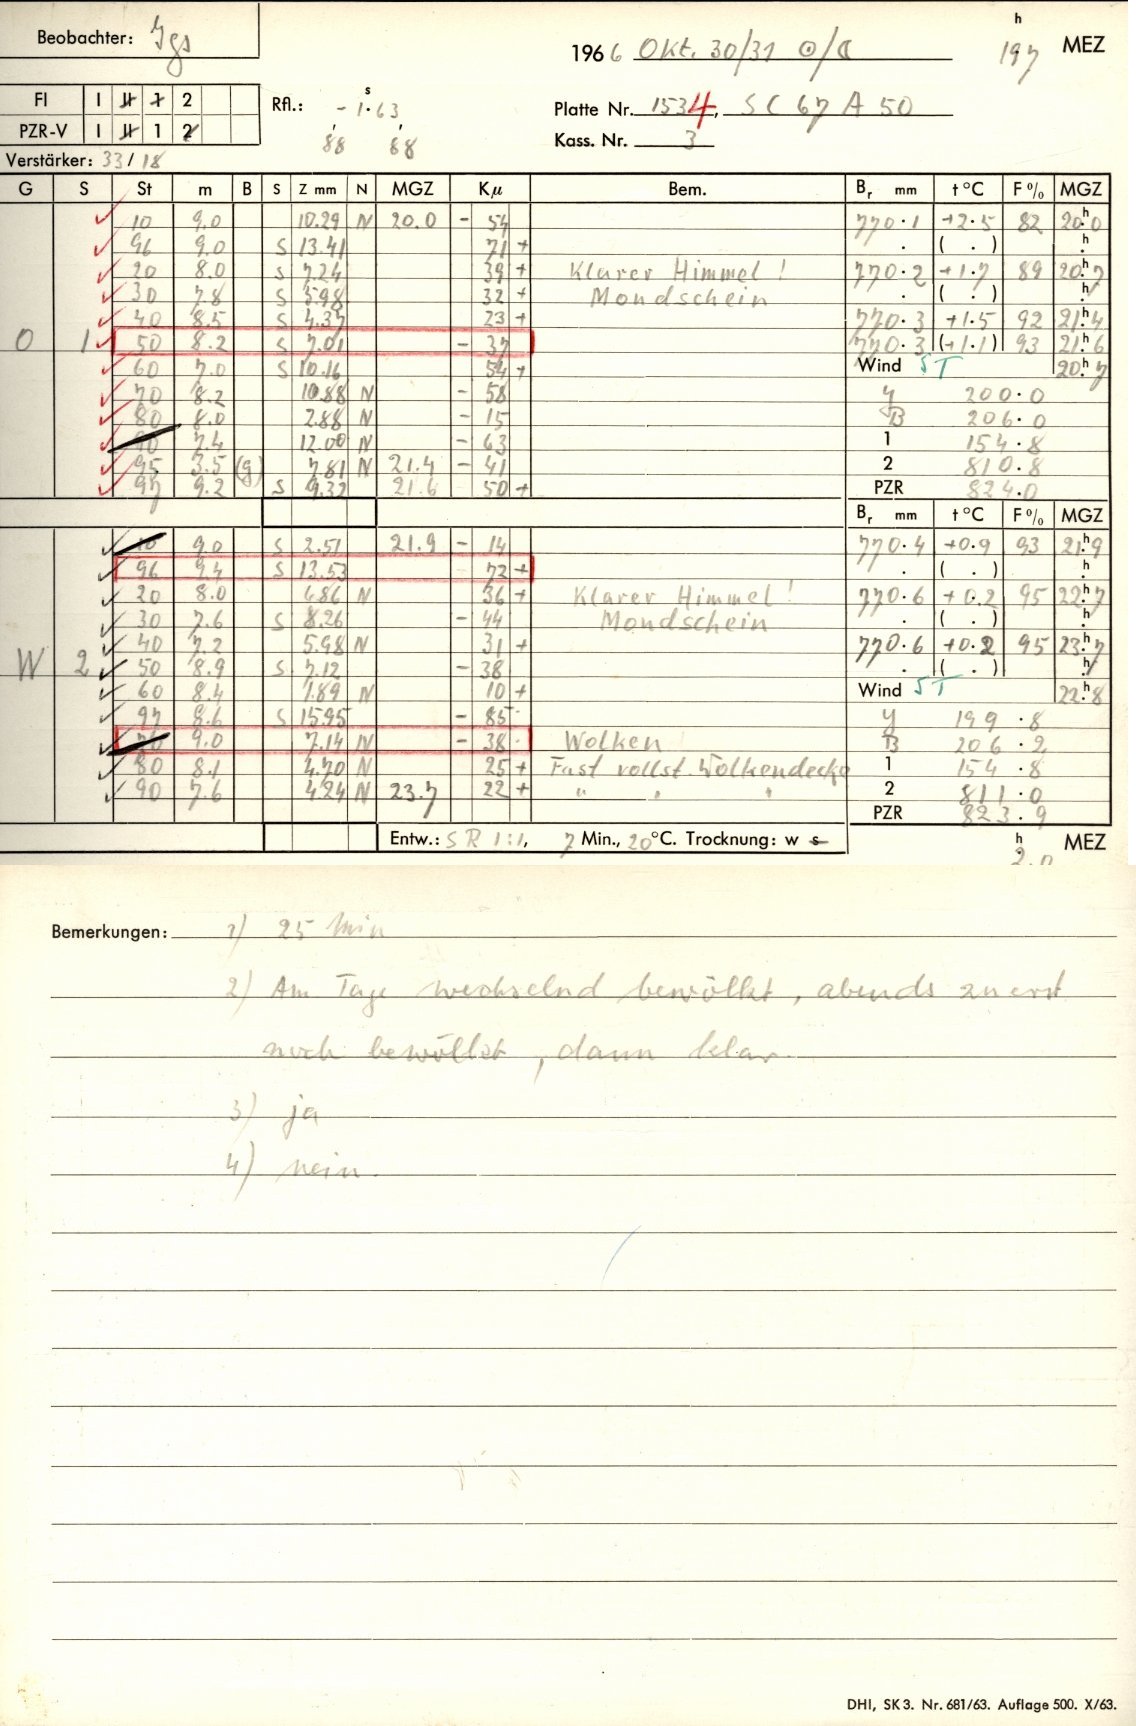 Beobachter: Jgs
1966 Okt. 30/31 ⊙/☾ 19h7 MEZ
Fl I II 1 2
PZR-V I II 1 2
Rfl.: - 1s.63
88 88
Platte Nr. 1534, SC 67 A 50
Kass. Nr. 3
Verstärker: 33/18
G S St m B S Z mm N MGZ Kμ Bem. Br mm t°C F% MGZ
10 9.0 10.29 N 20.0 - 54 770.1 +2.5 82 20h0
96 9.0 S 13.41 71 + . ( . ) h.
20 8.0 S 7.24 39 + Klarer Himmel! 770.2 +1.7 89 20h7
30 7.8 S 5.98 32 + Mondschein . ( . ) h.
40 8.5 S 4.37 23 + 770.3 +1.5 92 21h4
O 1 50 8.2 S 7.01 - 37 770.3 (+1.1) 93 21h6
60 7.0 S 10.16 54 + Wind ST 20h7
70 8.2 10.88 N - 58 y 200.0
80 8.0 2.88 N - 15 B 206.0
90 7.4 12.00 N - 63 1 154.8
95 3.5 (g) 7.81 N 21.4 - 41 2 810.8
97 9.2 S 9.32 21.6 50 + PZR 824.0
Br mm t°C F% MGZ
10 9.0 S 2.51 21.9 - 14 770.4 +0.9 93 21h9
96 9.4 S 13.53 72 + . ( . ) h.
20 8.0 6.86 N 36 + Klarer Himmel! 770.6 +0.2 95 22h7
30 7.6 S 8.26 - 44 Mondschein . ( . ) h.
40 7.2 5.98 N 31 + 770.6 +0.2 95 23h7
W 2 50 8.9 S 7.12 - 38 . ( . ) h.
60 8.4 1.89 N 10 + Wind ST 22h8
97 8.6 S 15.95 - 85 y 199.8
70 9.0 7.14 N - 38 Wolken B 206.2
80 8.1 4.70 N 25 + Fast vollst. Wolkendecke 1 154.8
90 7.6 4.24 N 23.7 22 + " " " 2 811.0
PZR 823.9
Entw.: SR 1:1, 7 Min., 20°C. Trocknung: w s h 2.0 MEZ
Bemerkungen: 1) 25 Min
2) Am Tage wechselnd bewölkt, abends zuerst
noch bewölkt, dann klar.
3) ja
4) nein.
DHI, SK 3. Nr. 681/63. Auflage 500. X/63.